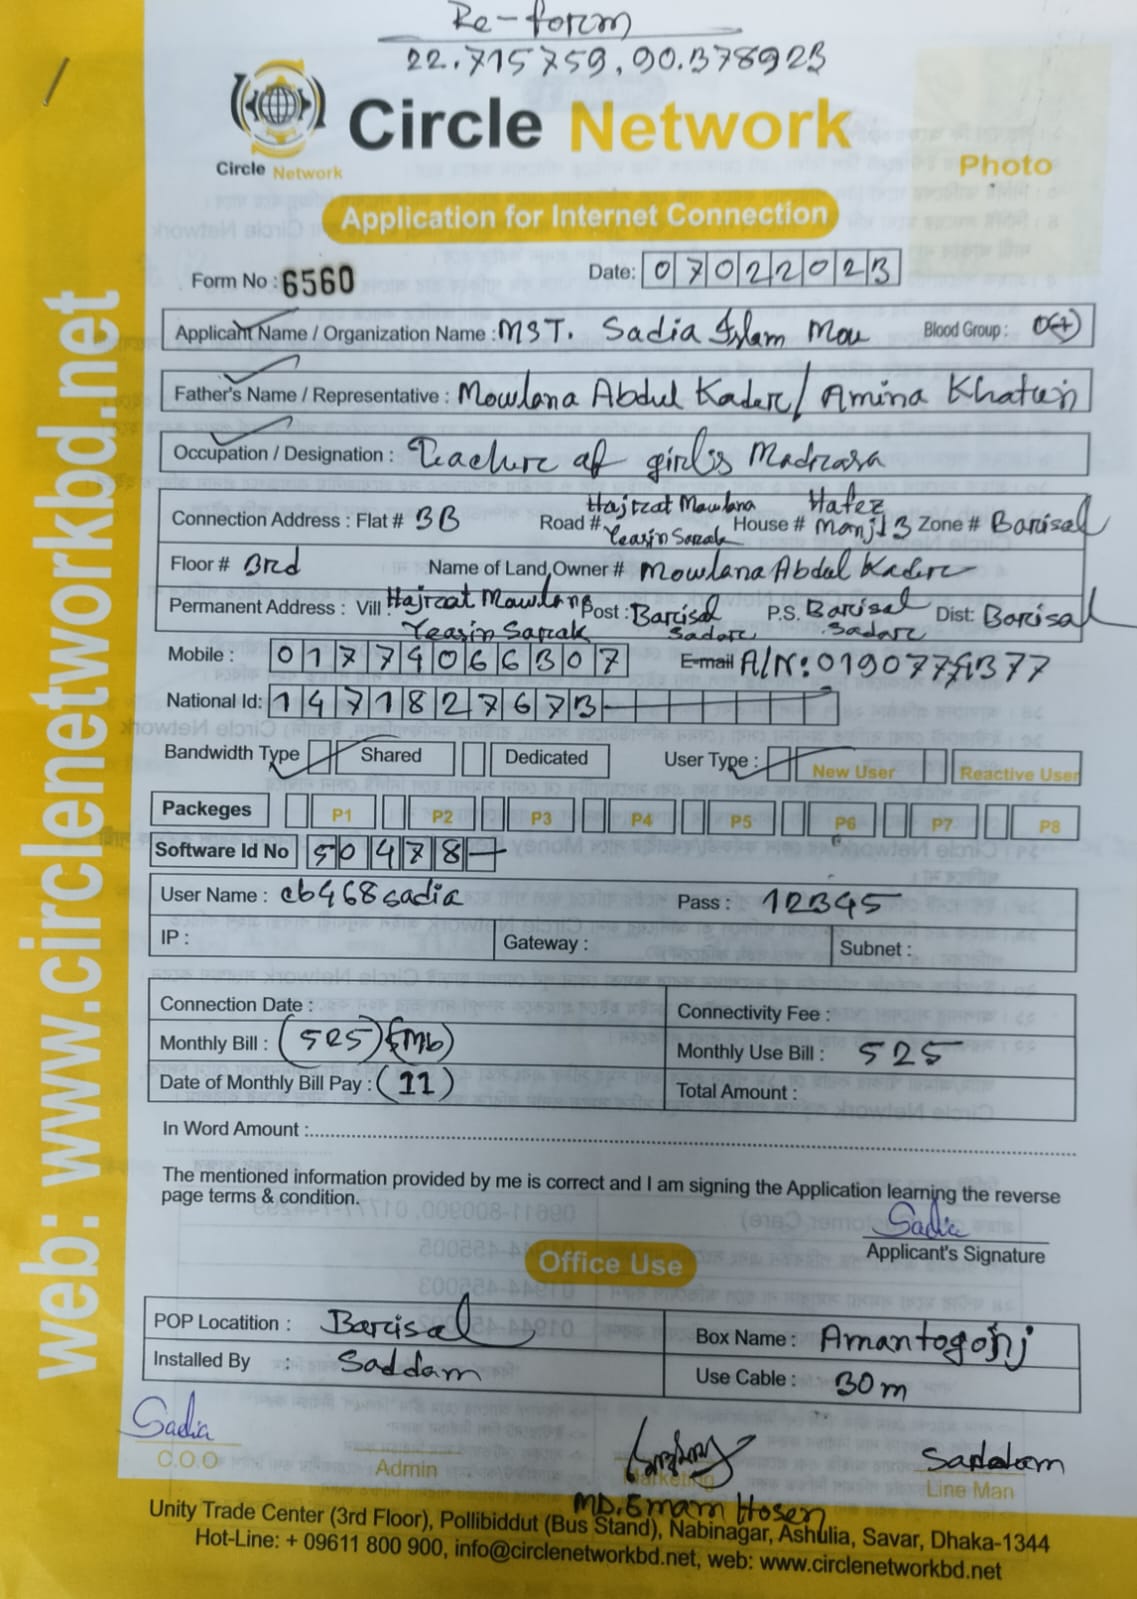 Re-form
22.715759, 90.378923
Circle Network
Circle Network
Photo
Application for Internet Connection
Form No : 6560
Date: 07022023
Applicant Name / Organization Name : MST. Sadia Islam Mou Blood Group : O(+)
Father's Name / Representative : Mowlana Abdul Kader / Amina Khatun
Occupation / Designation : Teacher of girls Madrasa
Connection Address : Flat # 3B Road # Hajrat Mowlana Yeasin Sarak House # Hafez Manjil 3 Zone # Barisal
Floor # 3rd Name of Land Owner # Mowlana Abdul Kader
Permanent Address : Vill Hajrat Mowlana Yeasin Sarak Post : Barisal Sadar P.S. Barisal Sadar Dist: Barisal
Mobile : 01774066307 E-mail A/N:
National Id: 1471827673
Bandwidth Type Shared Dedicated User Type : New User Reactive User
Packeges P1 P2 P3 P4 P5 P6 P7 P8
Software Id No 50478
User Name : cb468sadia Pass : 12345
IP : Gateway : Subnet :
Connection Date : Connectivity Fee :
Monthly Bill : (525) (5mb) Monthly Use Bill : 525
Date of Monthly Bill Pay : (11) Total Amount :
In Word Amount :
The mentioned information provided by me is correct and I am signing the Application learning the reverse
page terms & condition.
Sadia
Applicant's Signature
Office Use
POP Locatition : Barisal Box Name : Amantogonj
Installed By : Saddam Use Cable : 30m
Sadia Saddam
C.O.O Admin Marketing Line Man
MD. Emam Hosen
Unity Trade Center (3rd Floor), Pollibiddut (Bus Stand), Nabinagar, Ashulia, Savar, Dhaka-1344
Hot-Line: + 09611 800 900, info@circlenetworkbd.net, web: www.circlenetworkbd.net
web: www.circlenetworkbd.net